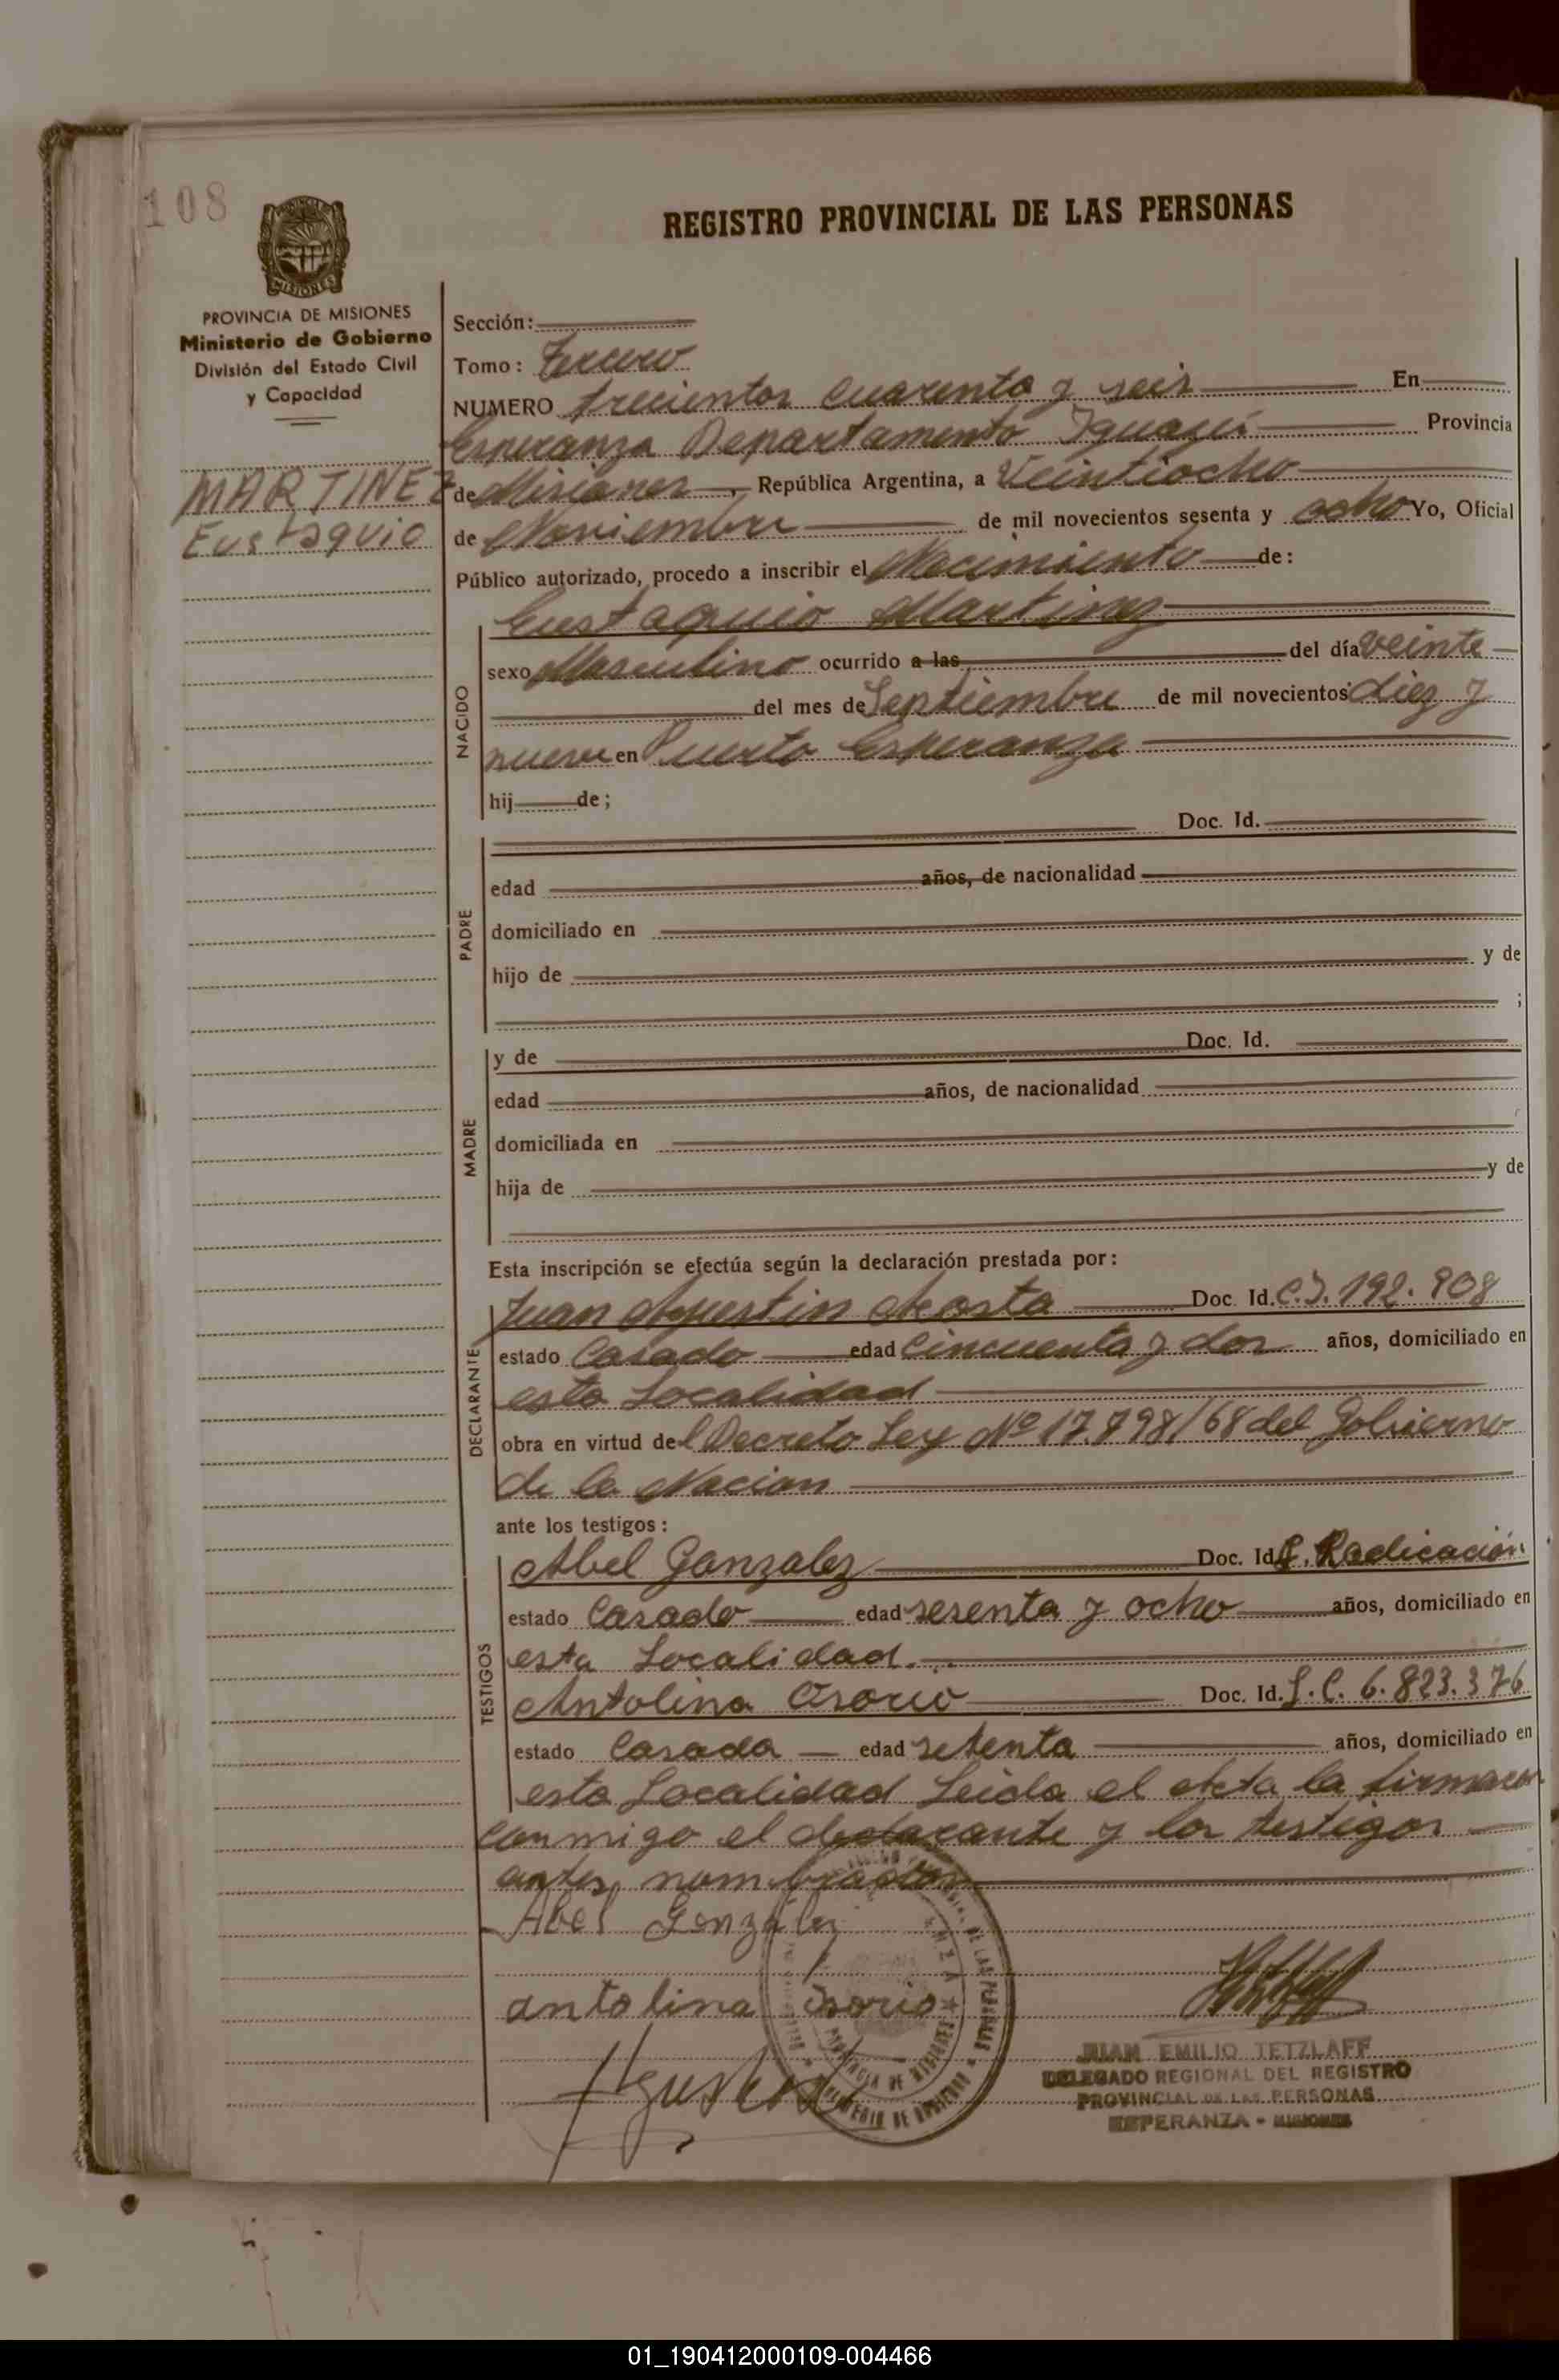 108
REGISTRO PROVINCIAL DE LAS PERSONAS
PROVINCIA DE MISIONES
Ministerio de Gobierno
División del Estado Civil
y Capacidad
MARTINEZ
Eustaquio
Sección:
Tomo: Tercero
NUMERO trecientos cuarenta y seis En
Esperanza Departamento Iguazú Provincia
de Misiones, República Argentina, a Veintiocho
de Noviembre de mil novecientos sesenta y ocho Yo, Oficial
Público autorizado, procedo a inscribir el Nacimiento de:
Eustaquio Martinez
NACIDO
sexo Masculino ocurrido a las del día veinte
del mes de Septiembre de mil novecientos diez y
nueve en Puerto Esperanza
hij de;
PADRE
Doc. Id.
edad años, de nacionalidad
domiciliado en
hijo de y de
;
MADRE
y de Doc. Id.
edad años, de nacionalidad
domiciliada en
hija de y de
Esta inscripción se efectúa según la declaración prestada por:
DECLARANTE
Juan Agustin Acosta Doc. Id. C.I. 192.908
estado Casado edad Cincuenta y dos años, domiciliado en
esta Localidad
obra en virtud del Decreto Ley Nº 17.798/68 del Gobierno
de la Nacion
ante los testigos:
TESTIGOS
Abel Gonzalez Doc. Id. C. Radicación
estado Casado edad sesenta y ocho años, domiciliado en
esta Localidad.
Antolina Osorio Doc. Id. L.C. 6.823.376
estado Casada edad setenta años, domiciliado en
esta Localidad Leida el Acta la firmaron
conmigo el declarante y los testigos
antes nombrados
Abel Gonzalez
antolina Osorio
JUAN EMILIO TETZLAFF
DELEGADO REGIONAL DEL REGISTRO
PROVINCIAL DE LAS PERSONAS
ESPERANZA - MISIONES
01_190412000109-004466